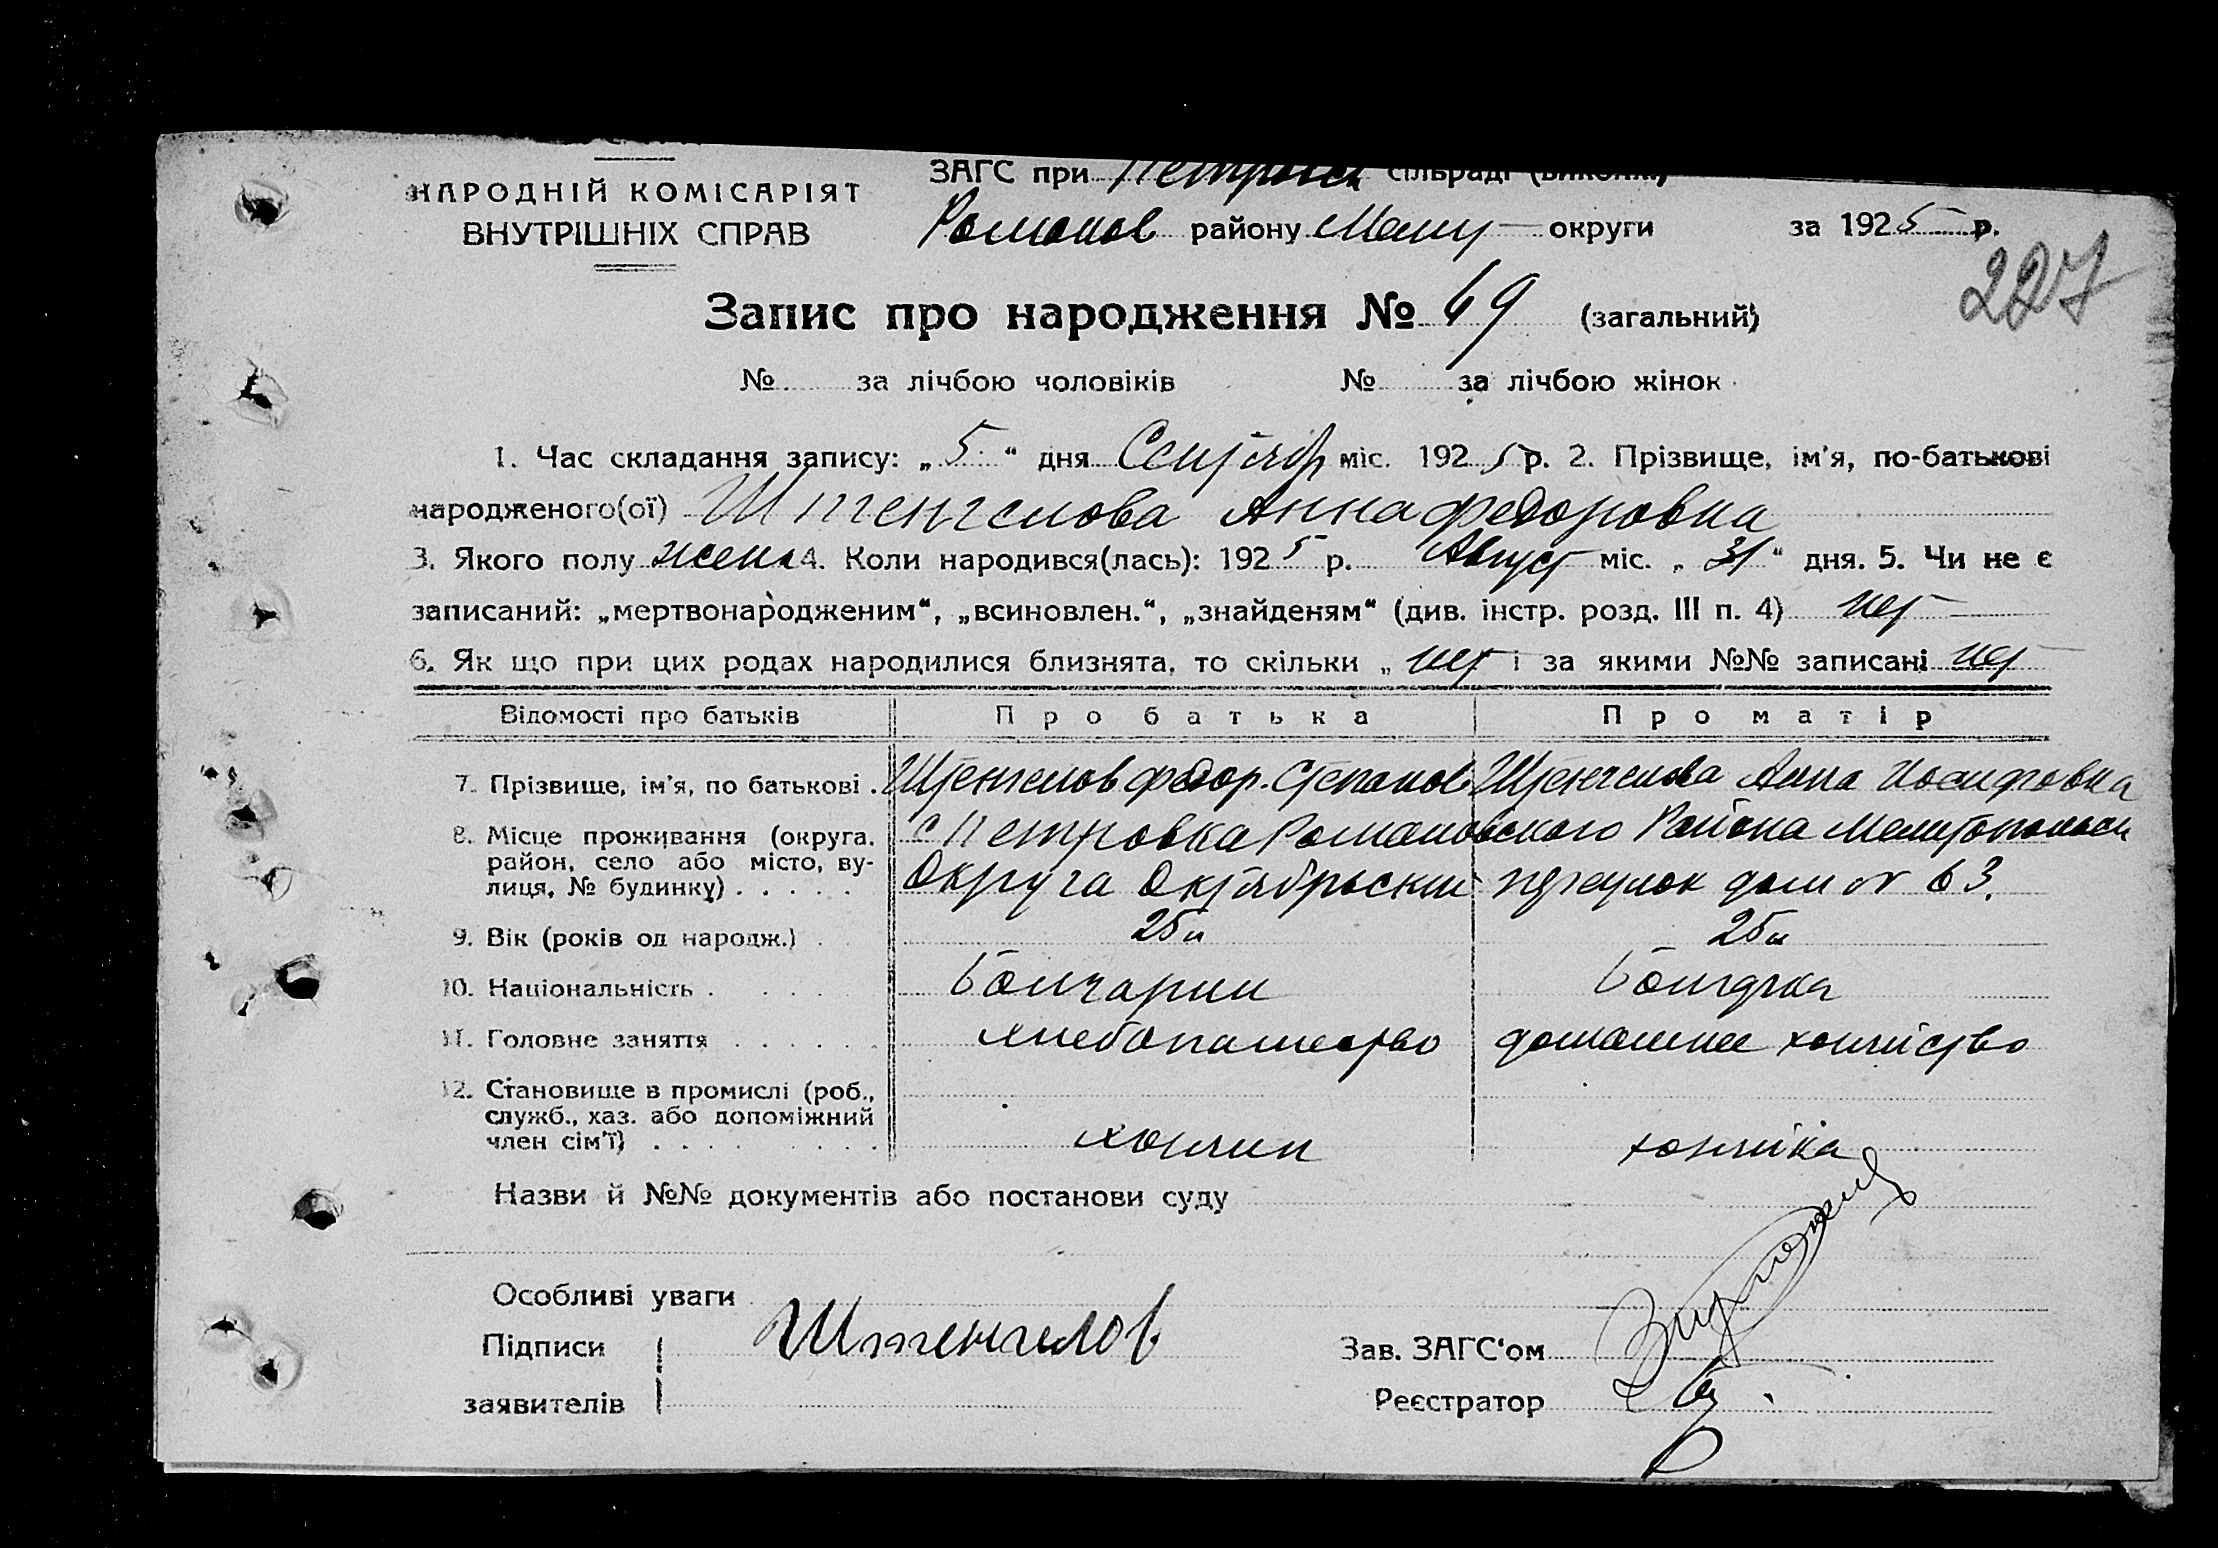 НАРОДНІЙ КОМІСАРІЯТ
ВНУТРІШНІХ СПРАВ
ЗАГС при Петровск сільраді
Романов району Мелит округи за 1925 р.
227
Запис про народження № 69 (загальний)
№ за лічбою чоловіків № за лічбою жінок
1. Час складання запису: „5“ дня Сентябр міс. 1925 р. 2. Прізвище, ім'я, по-батькові
народженого(ої) Штенгелова Анна Федоровна
3. Якого полу женс 4. Коли народився(лась): 1925 р. Август міс. „31“ дня. 5. Чи не є
записаний: „мертвонародженим“, „всиновлен.“, „знайденям“ (див. інстр. розд. III п. 4) нет
6. Як що при цих родах народилися близнята, то скільки „нет і за якими №№ записані нет
Відомості про батьків Про батька Про матір
7. Прізвище, ім'я, по батькові . Штенгелов Федор. Степанов Штенгелова Анна Иосифовна
8. Місце проживання (округа, район, село або місто, ву-лиця, № будинку) . . . . . с Петровка Романовского Района Мелитопольск
Округа Октябрьский переулок дом № 63.
9. Вік (років од народж.) . 25 л 25 л
10. Національність . . . . . Болгарин Болгарка
11. Головне заняття . . . . . . хлебопашество домашнее хозяйство
12. Становище в промислі (роб.,
служб., хаз. або допоміжний
член сім'ї) . . . . . . . . . хозяин хозяйка
Назви й №№ документів або постанови суду
Особливі уваги
Підписи Штенгелов Зав. ЗАГС'ом
заявителів Реєстратор